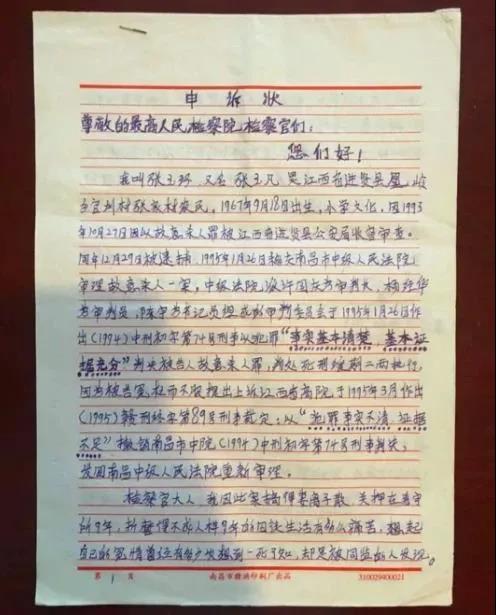 申诉状
尊敬的最高人民检察院检察官们：
您们好！
我叫张玉环 又名 张玉凡 是江西省进贤县凰岭
乡官圳村张家村农民，1967年9月18日出生，小学文化，因1993
年10月27日因以故意杀人罪被江西省进贤县公安局收容审查。
同年12月29日被逮捕，1995年1月26日被南昌市中级人民法院
审理故意杀人一案，中级法院 国 为审判长，杨 华
为审判员，陈 为书记员组成的审判委员会于1995年1月26日作
出(1994)中刑初字第74号刑事以犯罪“事实基本清楚，基本证
据充分”判决被告人故意杀人罪，判处死刑缓期二年执行，
因为被告冤枉而不服提出上诉江西省高院于1995年3月作出
(1995)赣刑终字第89号刑事裁定：以“犯罪事实不清，证据
不足”撤销南昌市中院(1994)中刑初字第74号刑事判决；
发回南昌中级人民法院重新审理。
检察官大人，我因此案搞得妻离子散，关押在看守
所9年，折磨得不成人样9年的囚徒生活有多么痛苦，想起
自己的冤情曾经有多少次想到一死了知，却是被同监的人发现。
第 1 页 南昌市赣滨印刷厂出品 310029400021